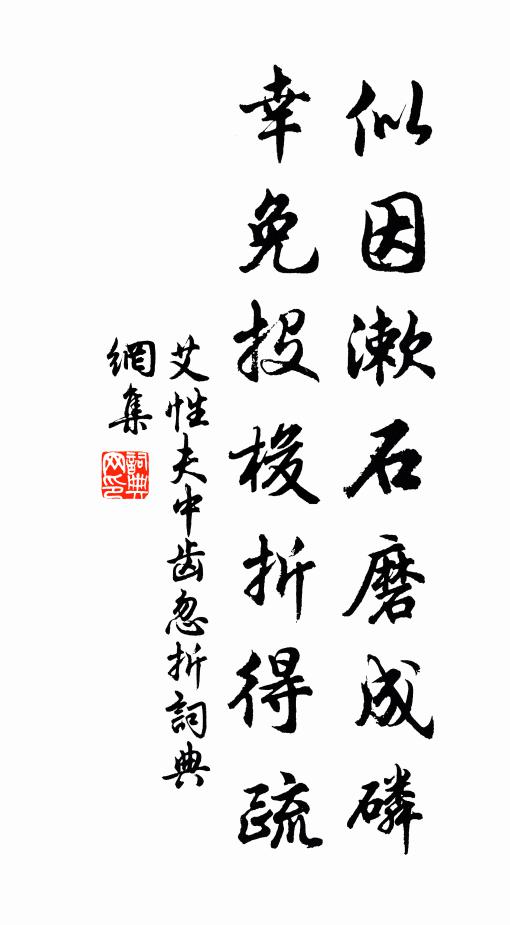 似因漱石磨成磷
幸免投梭折得疏
艾性夫中齿忽折詞典
網集
詞典網印